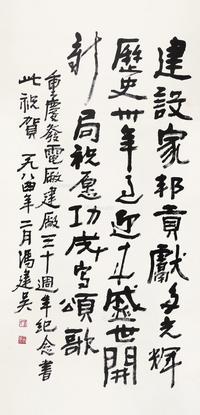 建設家邦貢獻多光輝
歷史卅年過迎来盛世開
新局祝愿功成寫頌歌
重慶發電廠建廠三十週年紀念書
此祝賀 一九八四年二月馮建吳